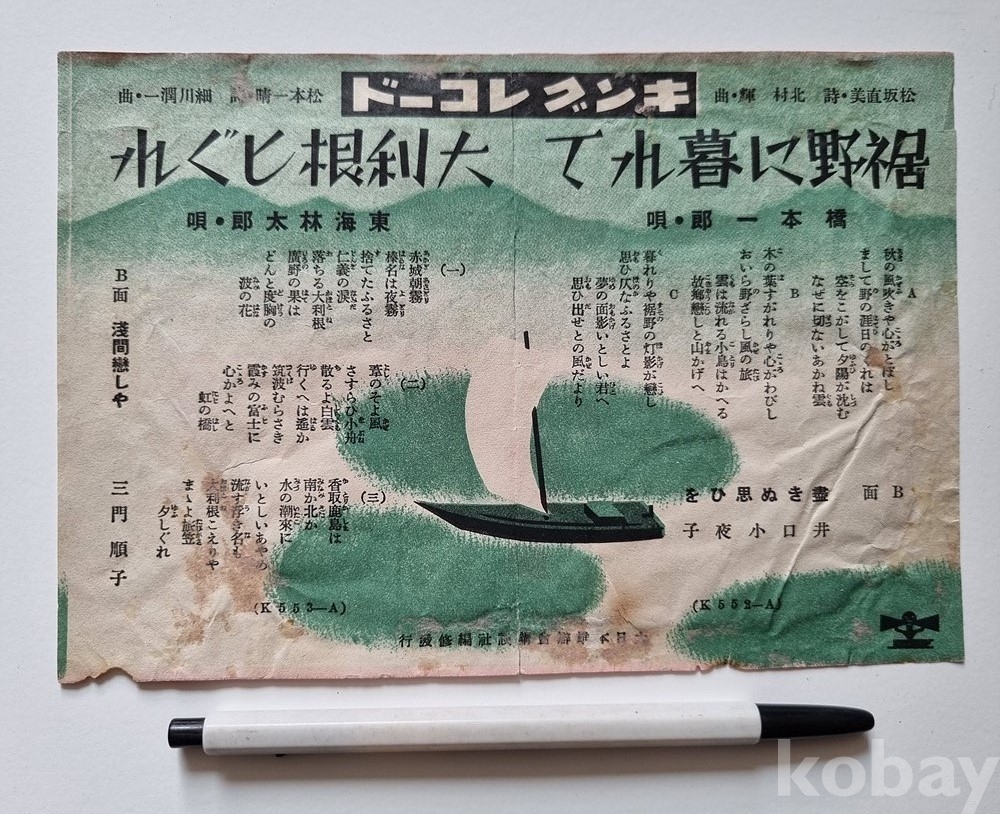 キングレコード
松坂直美・詩 北村 輝・曲
裾野に暮れて
橋本一郎・唄
A
秋の風吹きや心がとぼし
まして野の涯日のくれは
空をこがして夕陽が沈む
なぜに切ないあかね雲
B
木の葉すがれりや心がわびし
おいら野ざらし風の旅
雲は流れる小鳥はかへる
故郷戀しと山かげへ
C
暮れりや裾野の灯影が戀し
思ひ仄なふるさとよ
夢の面影いとしい君へ
思ひ出せとの風だより
B面 盡きぬ思ひを
井口小夜子
(K552―A)
松本一晴・詩 細川潤一・曲
大利根しぐれ
東海林太郎・唄
(一)
赤城朝霧
榛名は夜霧
捨てたふるさと
仁義の涙
落ちる大利根
廣野の果は
どんと度胸の
波の花
(二)
葦のそよ風
さすらひ小舟
散るよ白雲
行くへは遙か
筑波むらさき
霞みの富士に
心かよへと
虹の橋
(三)
香取鹿島は
南か北か
水の潮來に
いとしいあやめ
流す浮き名も
大利根こえりや
まゝよ旅笠
夕しぐれ
B面 淺間戀しや
三門順子
(K553―A)
大日本雄辯會講談社編修發行
kobay